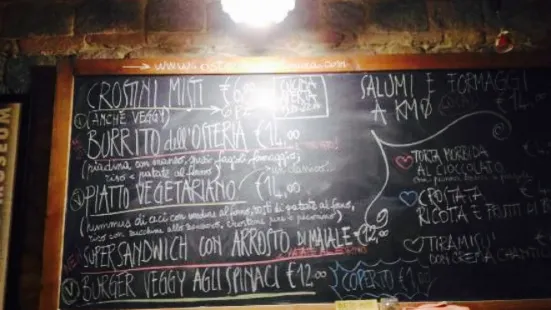 CROSTINI MISTI
(ANCHE VEGGY)
BURRITO dell'OSTERIA €14,00
(piadina con manzo, fagioli, formaggio,
riso e patate al forno)
PIATTO VEGETARIANO €14,00
(hummus di ceci con verdure al forno, di patate al forno,
riso con zucchine allo zafferano, e pecorino)
SUPER SANDWICH CON ARROSTO DI MAIALE €12,00
BURGER VEGGY AGLI SPINACI €12,00
COPERTO €1,
SALUMI E FORMAGGI
A KM0 €14,
TORTA MORBIDA
AL CIOCCOLATO
CROSTATA
RICOTTA E FRUTTI DI
TIRAMISU
CON CREMA CHANTI
MUSEUM